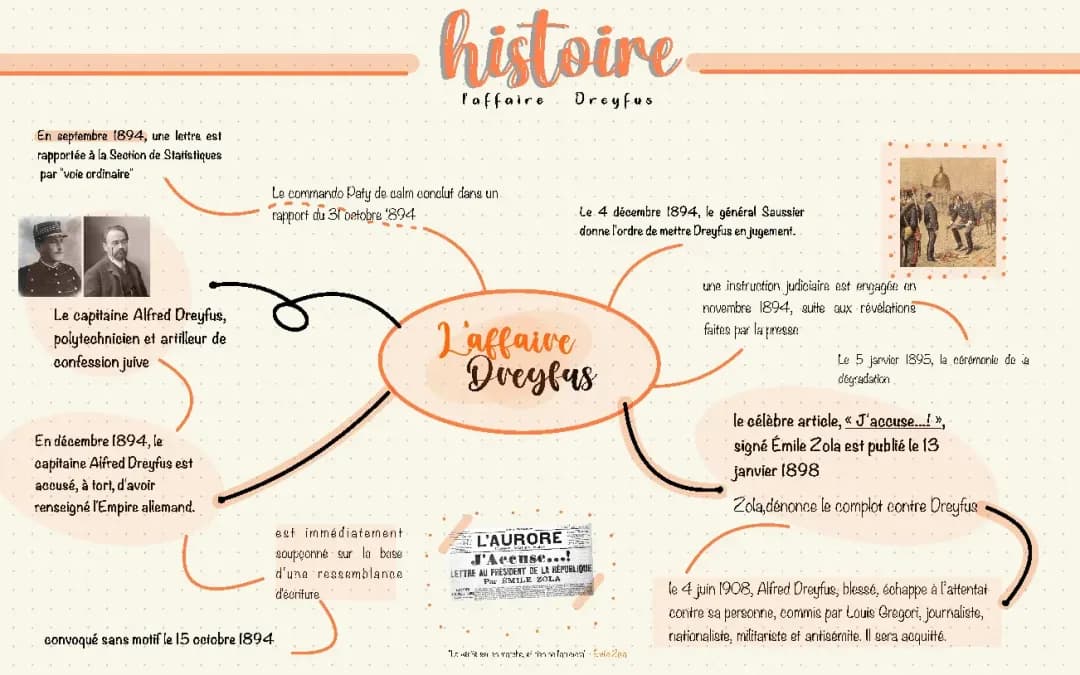 histoire
l'affaire Dreyfus
En septembre 1894, une lettre est
rapportée à la Section de Statistiques
par "voie ordinaire"
Le commando Paty de calm conclut dans un
rapport du 31 octobre '894
Le 4 décembre 1894, le général Saussier
donne l'ordre de mettre Dreyfus en jugement.
une instruction judiciaire est engagée en
novembre 1894, suite aux révélations
faites par la presse
Le 5 janvier 1895, la cérémonie de la
dégradation
Le capitaine Alfred Dreyfus,
polytechnicien et artilleur de
confession juive
L'affaire
Dreyfus
En décembre 1894, le
capitaine Alfred Dreyfus est
accusé, à tort, d'avoir
renseigné l'Empire allemand.
le célèbre article, « J'accuse...! »,
signé Émile Zola est publié le 13
janvier 1898
Zola,dénonce le complot contre Dreyfus
est immédiatement
soupçonné sur la base
d'une ressemblance
d'écriture
convoqué sans motif le 15 octobre 1894
L'AURORE
J'Accuse...!
LETTRE AU PRÉSIDENT DE LA RÉPUBLIQUE
Par ÉMILE ZOLA
le 4 juin 1908, Alfred Dreyfus, blessé, échappe à l'attentat
contre sa personne, commis par Louis Gregori, journaliste,
nationaliste, militariste et antisémite. Il sera acquitté.
"La vérité est en marche, et rien ne l'arrêtera" - Émile Zola